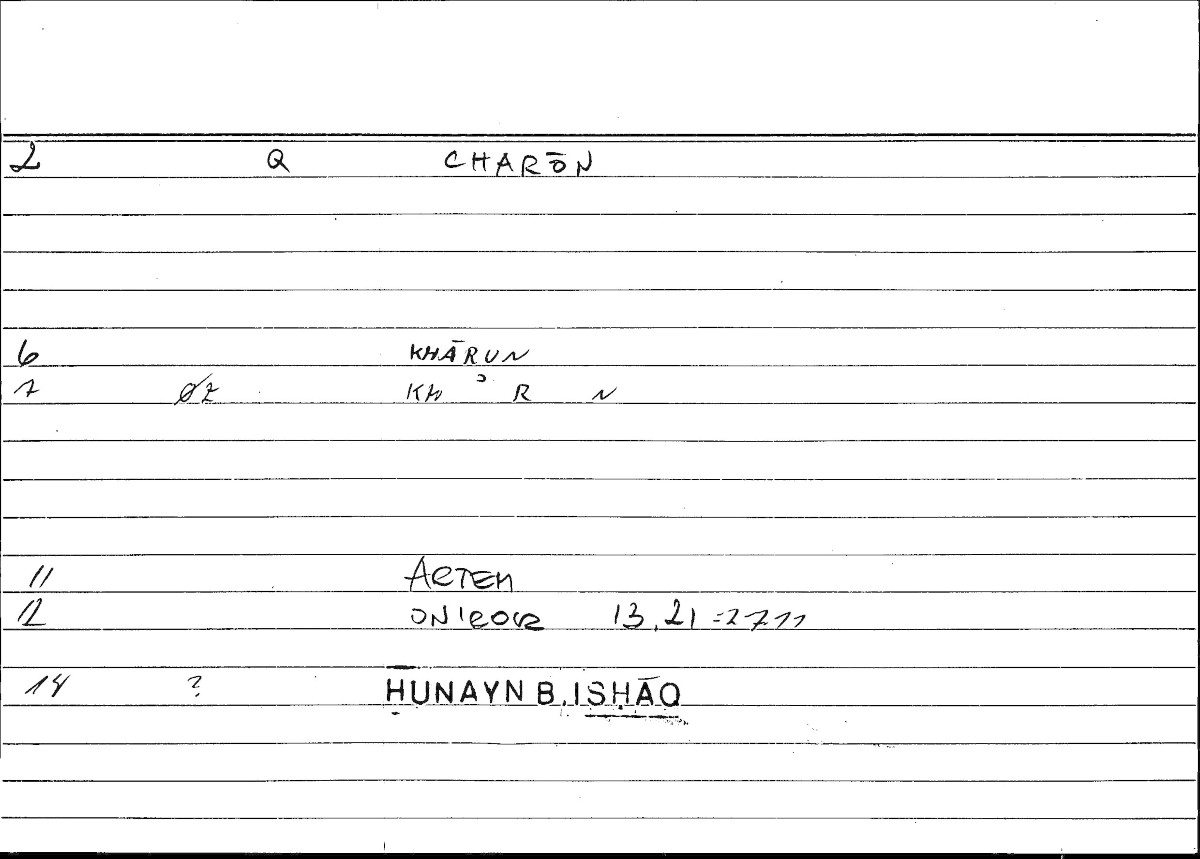 2 Q CHARŌN
6 KHĀRUN
7 ØZ KH ʾ R N
11 ARTEM
12 ONIROCR 13,21 = 27 11
14 ? ḤUNAYN B. ISḤĀQ